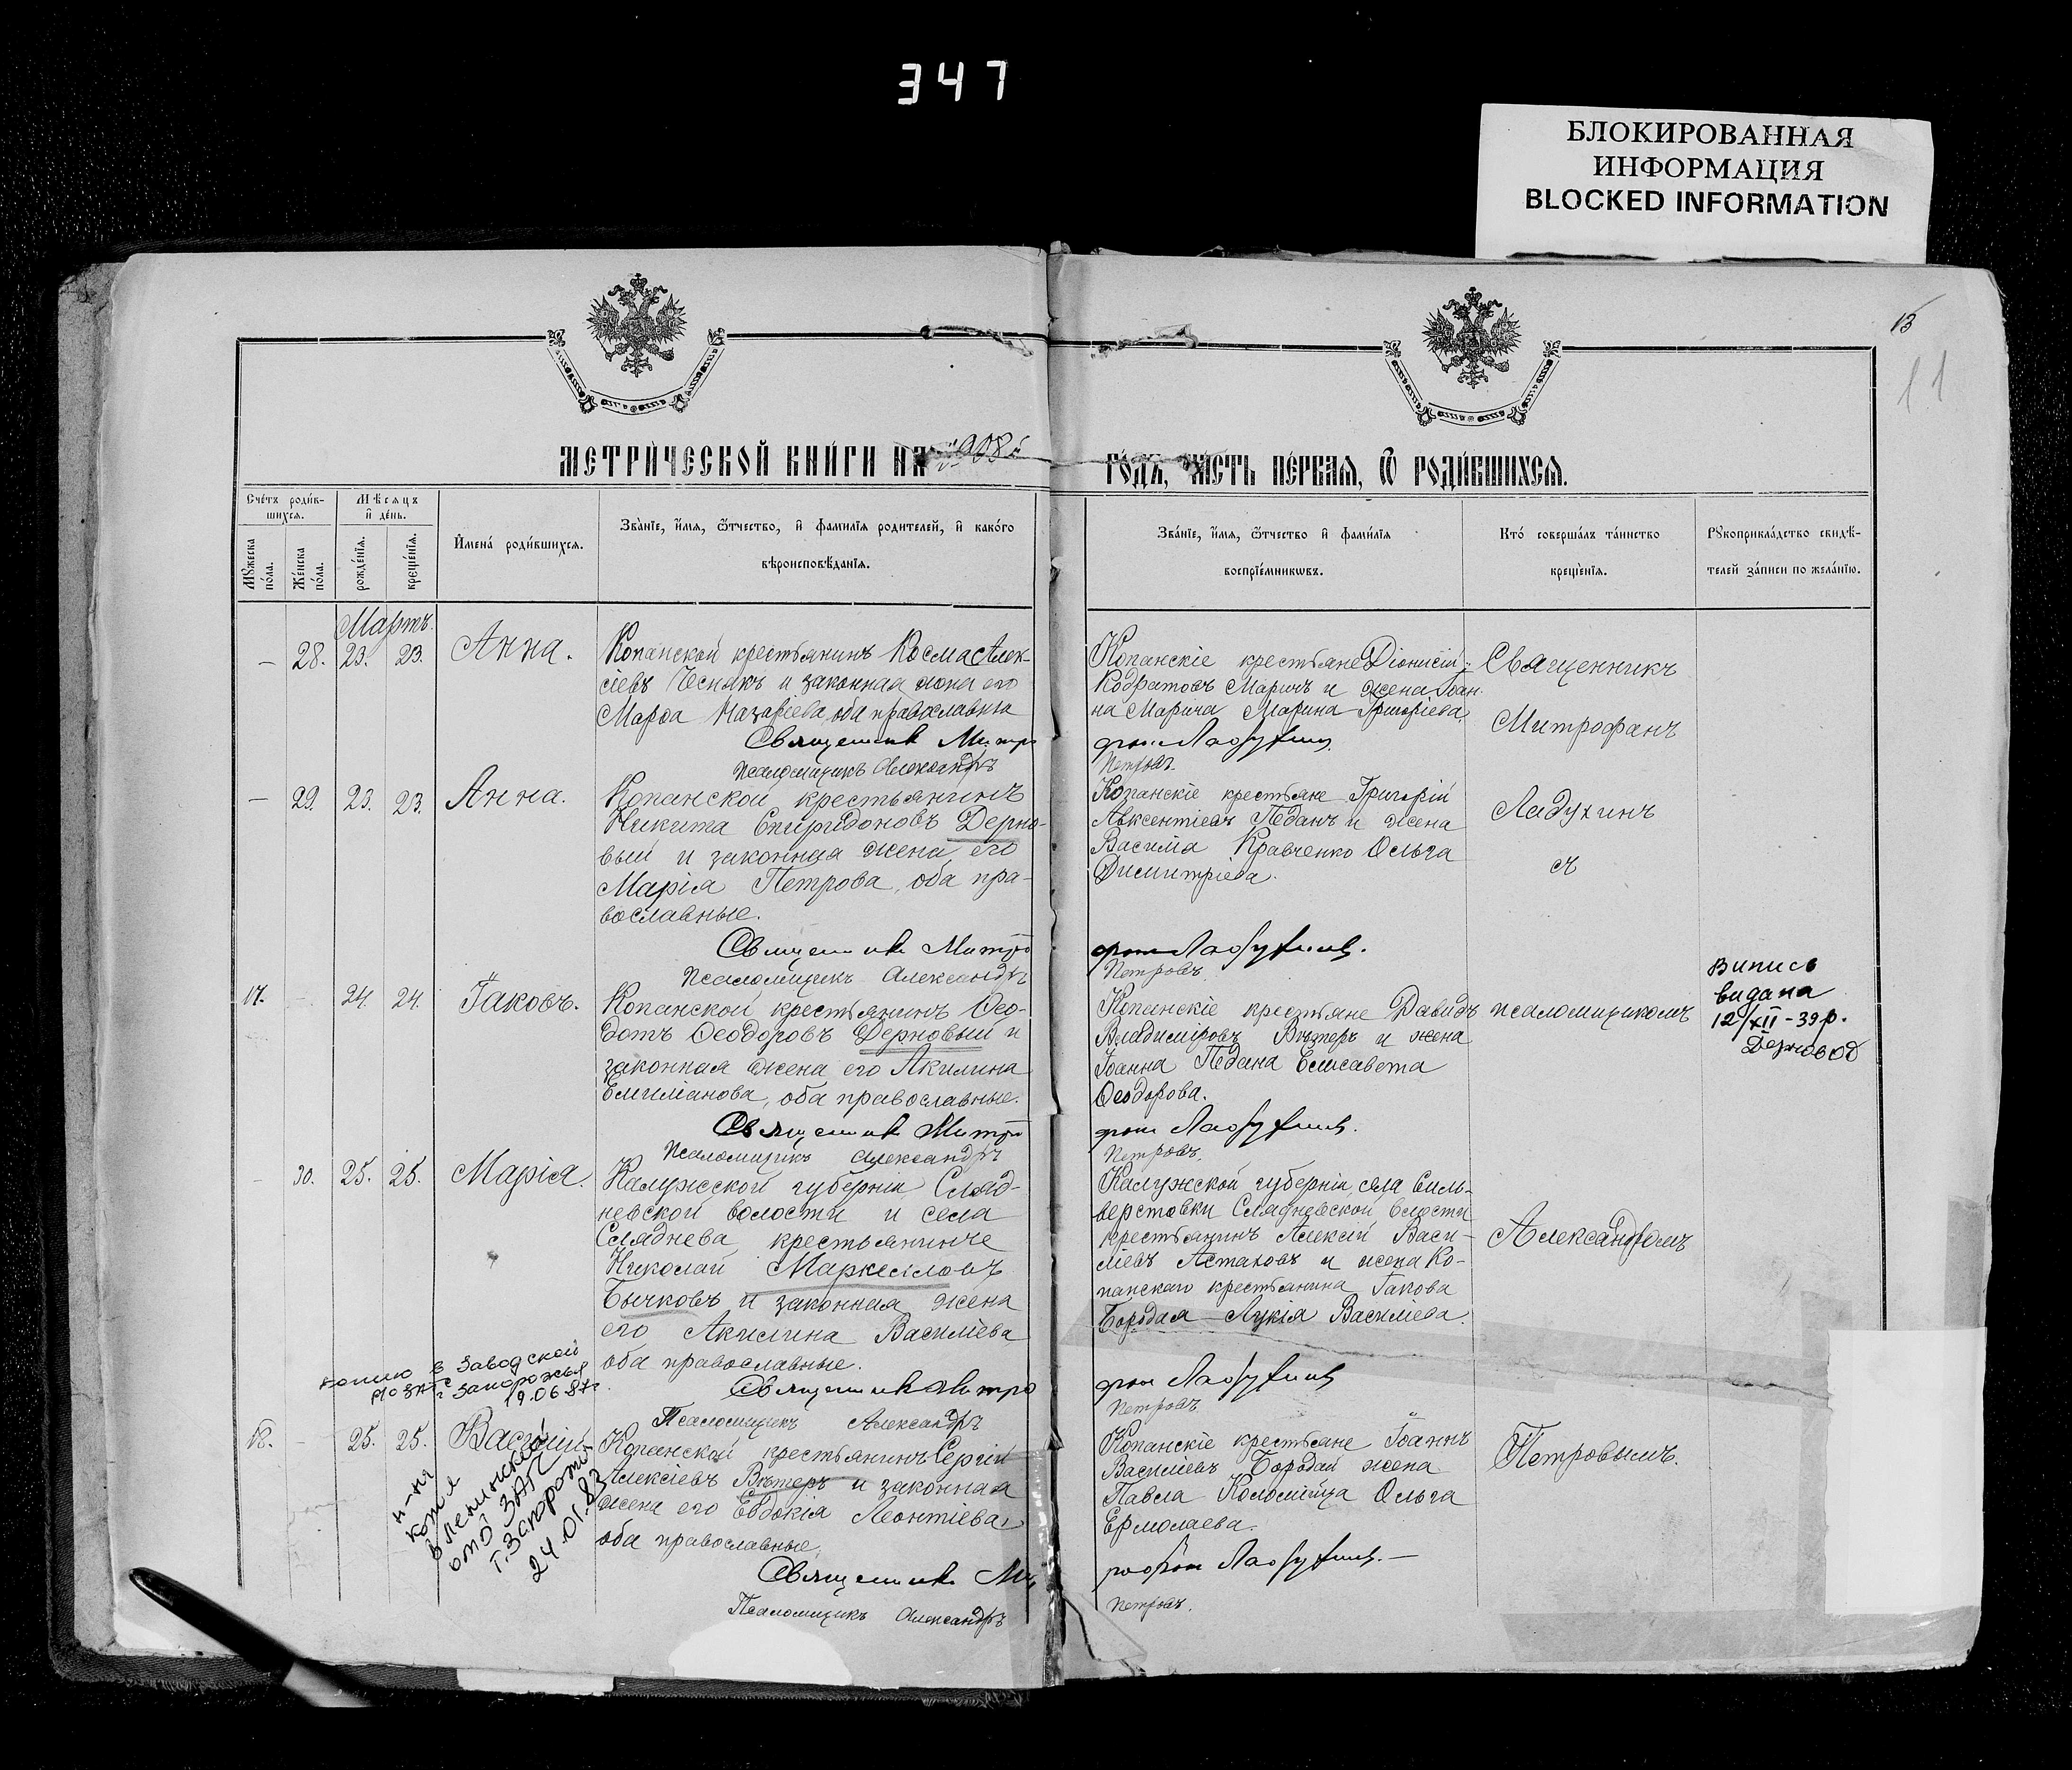 347
БЛОКИРОВАННАЯ
ИНФОРМАЦИЯ
BLOCKED INFORMATION
13
11
МЕТРИ́ЧЕСКОЙ КНИ́ГИ НА 1908й
ГО́ДЪ, ЧА́СТЬ ПЕ́РВАЯ, Ѿ РОДИ́ВШИХСЯ.
Сче́тъ роди́в-
шихся.
Мѣсяцъ
и҆ де́нь.
Мꙋжеска
по́ла.
Же́нска
по́ла.
рожде́нїя.
креще́нїя.
И҆мена̀ роди́вшихся.
Зва́нїе, и҆́мя, ѻ҆́тчество, и҆ фамилїя родителей, и҆ како́го
вѣроисповѣ́данїя.
Зва́нїе, и҆́мя, ѻ҆́тчество и҆ фами́лїя
воспрїе́мникѡвъ.
Кто́ соверша́лъ та́инство
креще́нїя.
Рꙋкоприкла́дство свидѣ́-
телей за́писи по жела́нїю.
Мартъ.
— 28. 23. 23. Анна.
Копанской крестьянинъ Косма Алек-
сіевъ Чеснакъ и законная жена его
Марѳа Назаріева, оба православны
Священникъ Митро
Псаломщикъ Александръ
Копанскіе крестьяне: Діонисій
Кодратовъ Маричъ и жена Іоан-
на Марича Марина Григоріева.
фанъ Ладухинъ.
Петровъ.
Священникъ
Митрофанъ
— 29. 23. 23. Анна.
Копанской крестьянинъ
Никита Спиридоновъ Дерно-
вый и законная жена его
Марія Петрова, оба пра-
вославные.
Священникъ Митро
Псаломщикъ Александръ
Копанскіе крестьяне Григорій
Авксентіевъ Педанъ и жена
Василія Кравченко Ольга
Димитріева.
фанъ Ладухинъ.
Петровъ.
Ладухинъ
съ
17. — 24. 24. Іаковъ.
Копанской крестьянинъ Ѳео-
дотъ Ѳеодоровъ Дерновый и
законная жена его Акилина
Емиліанова, оба православные.
Священникъ Митро
Псаломщикъ Александръ
Копанскіе крестьяне Давидъ
Владиміровъ Вѣтеръ и жена
Іоанна Педана Елисавета
Ѳеодорова.
фанъ Ладухинъ.
Петровъ.
псаломщикомъ
Випись
видана
12/XII-39р.
— 30. 25. 25. Марія.
Калужской губерніи, Сляд-
невской волости и села
Сляднева крестьянинъ
Николай Маркелловъ
Бычковъ и законная жена
его Акилина Василіева
оба православные.
Священникъ Митро
Псаломщикъ Александръ
Калужской губерніи, села Силь-
верстовки Слядневской волости
крестьянинъ Алексій Васи-
ліевъ Астаховъ и жена Ко-
панскаго крестьянина Іакова
Бородая Лукія Василіева.
фанъ Ладухинъ
Петровъ.
Александромъ
копию в Заводской
г. Запорожья
19.06.87г.
18. — 25. 25. Василій.
Копанской крестьянинъ Сергій
Алексіевъ Вѣтеръ и законная
жена его Евдокія Леонтіева,
оба православные.
Священникъ Ми
Псаломщикъ Александръ
Копанскіе крестьяне Іоаннъ
Василіевъ Бородай жена
Павла Коломійца Ольга
Ермолаева.
трофанъ Ладухинъ. —
Петровъ.
Петровымъ.
копия
в Ленинский
отд ЗАГС
24.01.83